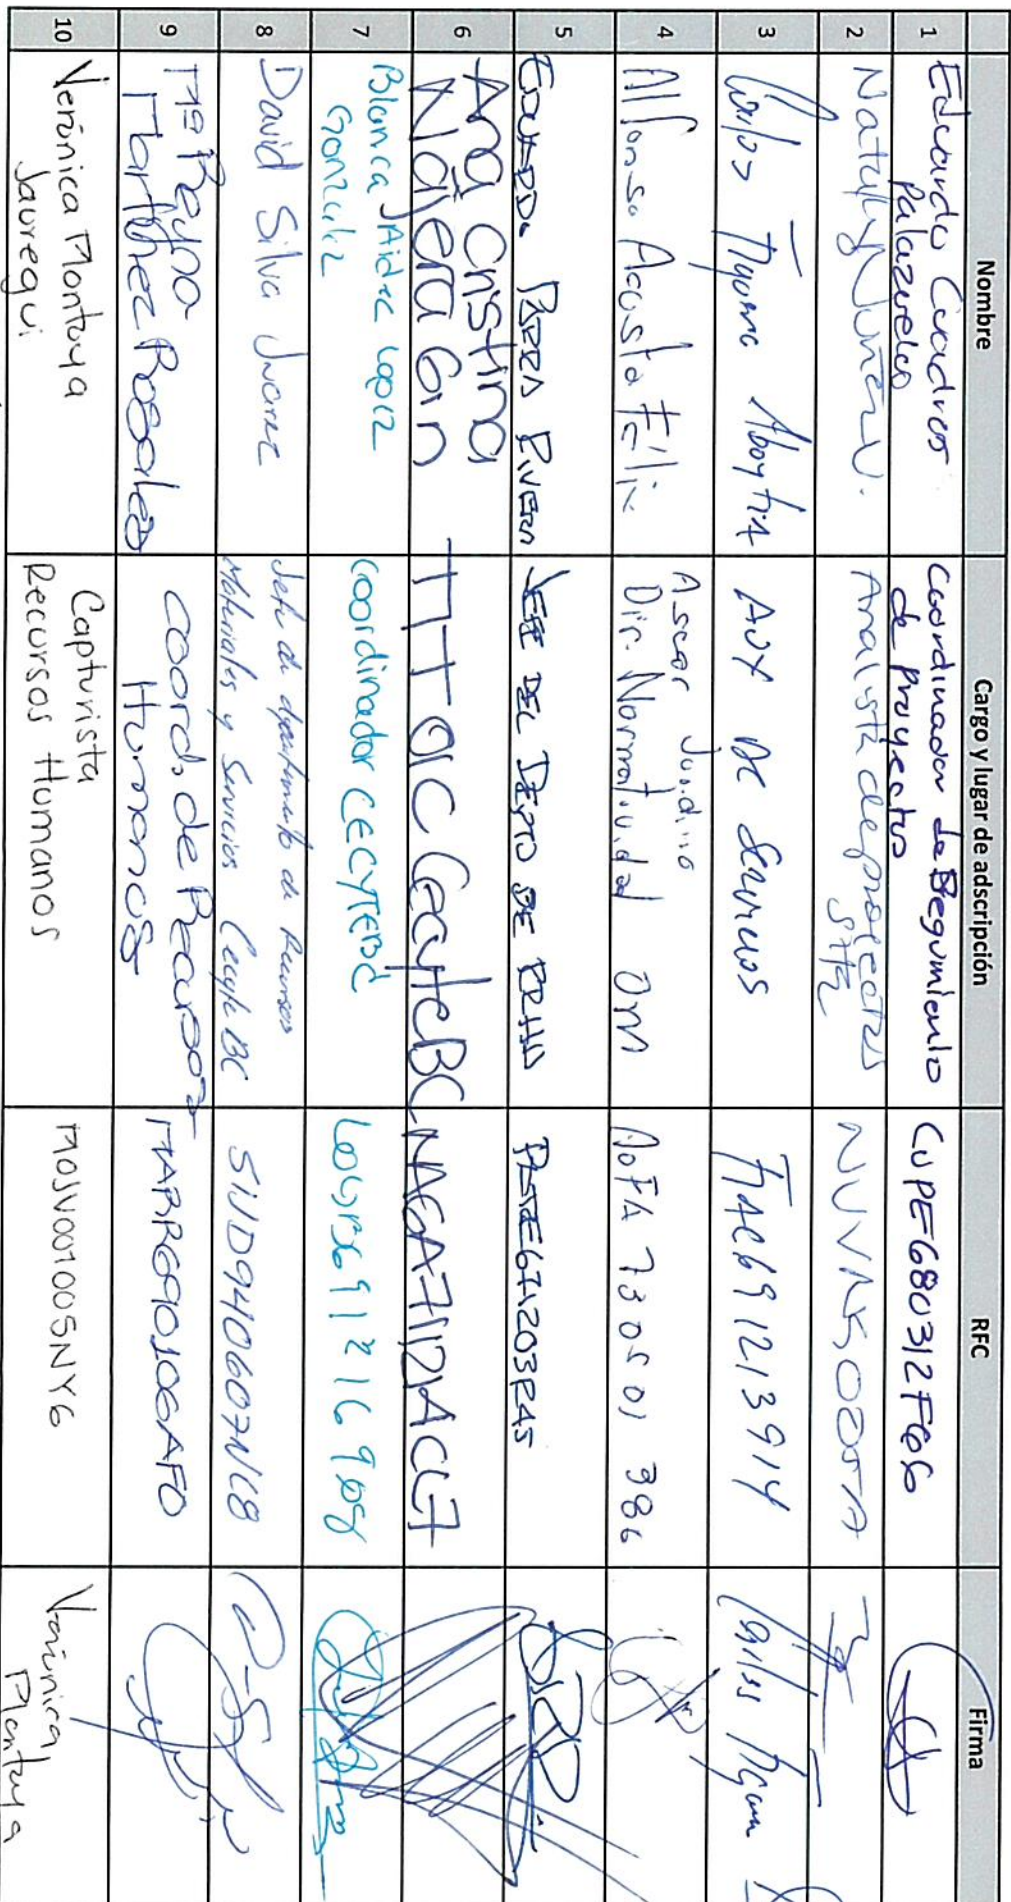 Nombre Cargo y lugar de adscripción RFC Firma
1 Eduardo Cuadros Palazuelos Coordinador de Seguimiento de proyectos CUPE680312F66
2 Nataly Nuñez V. Analista de proyectos
3 Carlos Aboytia Aux de Servicios
4 Alfonso Acosta Félix Asesor Juridico Dir. Normatividad OM AOFA730501386
5 Eduardo Rivera Jefe del Depto de
6 Ana Cristina Najera Gin TIT OIC CecyteBC
7 Blanca Aidee Lopez Gonzalez Coordinador CECYTEBC
8 David Silva Juarez Jefe de departamento de Recursos Materiales y Servicios Cecyte BC SIJD940607
9 Ma Reyna Martinez Rosales Coord. de Recursos Humanos MARR690106AF0
10 Verónica Montoya Jauregui Capturista Recursos Humanos MOJV001005NY6 Verónica Montoya